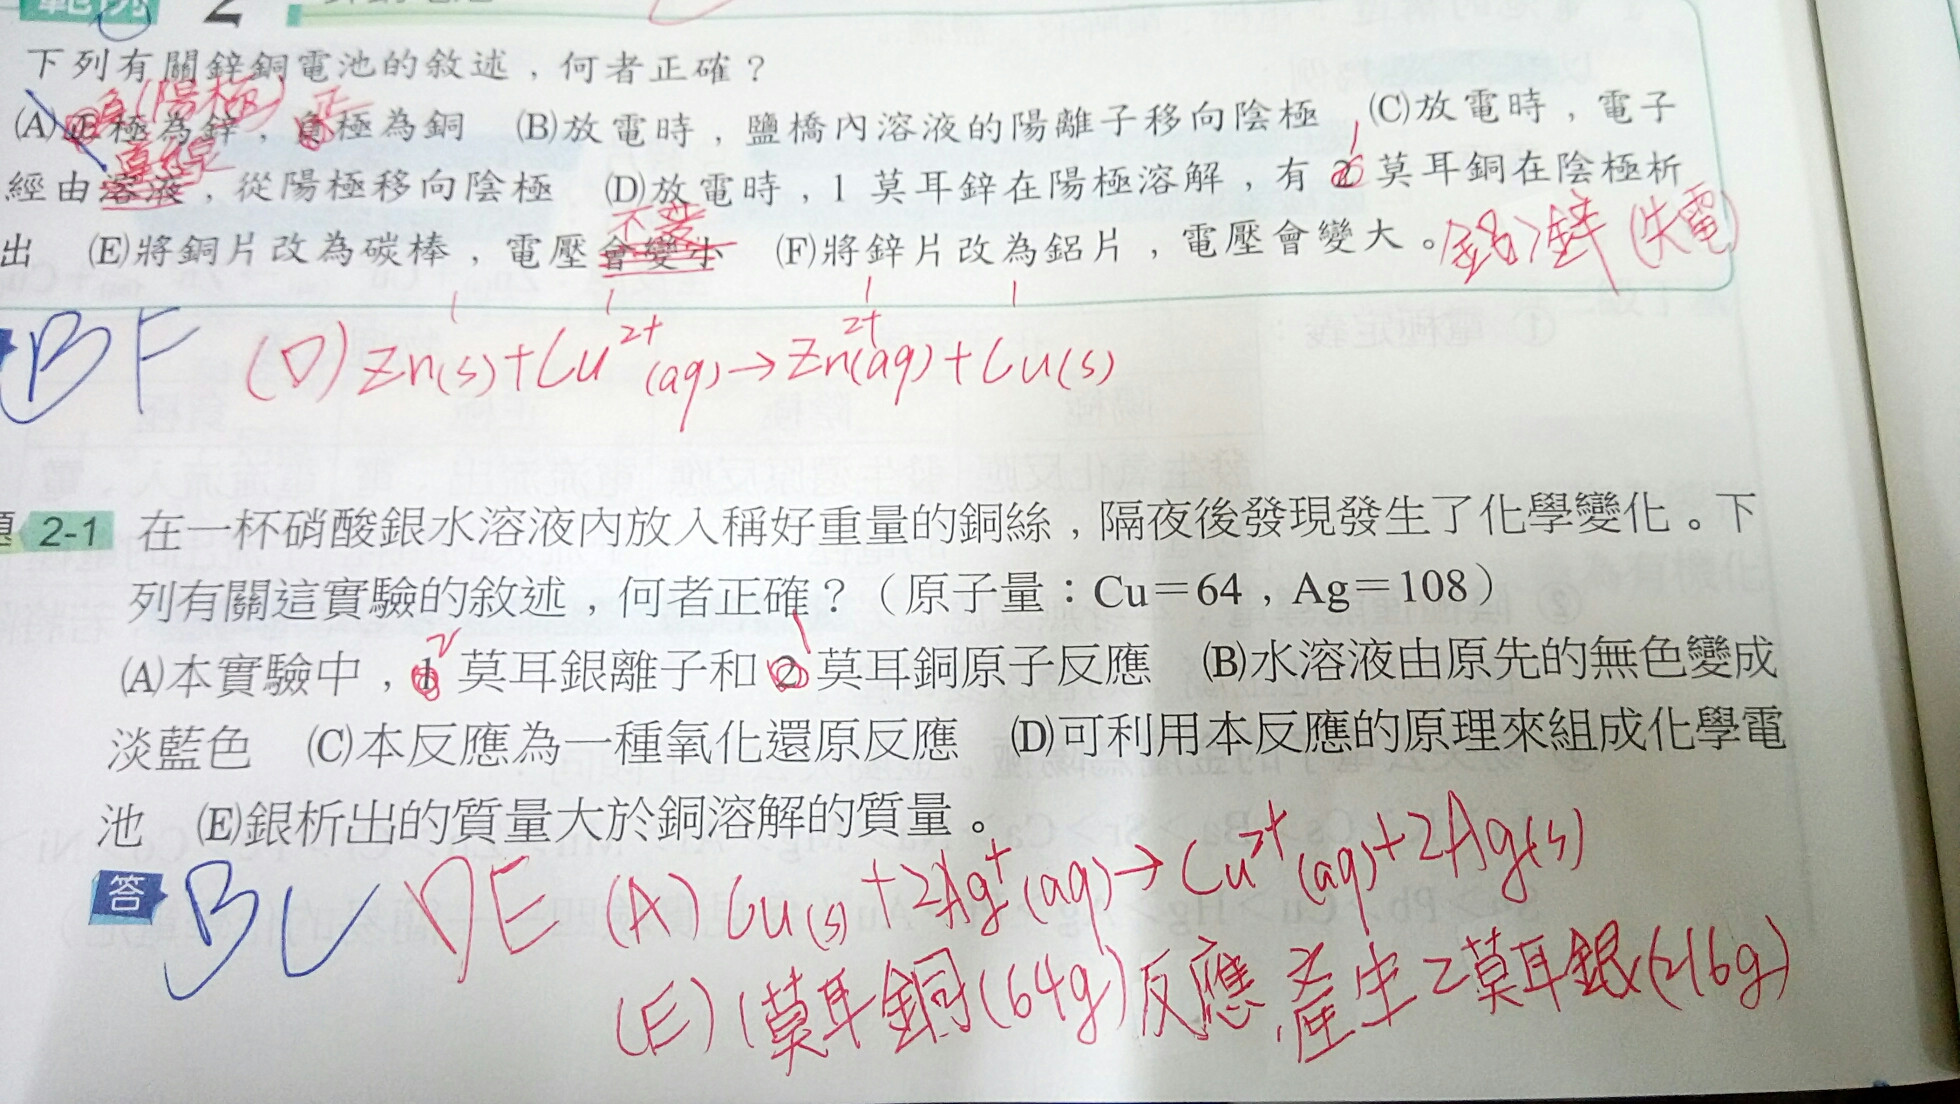 範例 2
下列有關鋅銅電池的敘述，何者正確？
負(陽極) 正
(A)正極為鋅，負極為銅 (B)放電時，鹽橋內溶液的陽離子移向陰極 (C)放電時，電子
導線 1
經由溶液，從陽極移向陰極 (D)放電時，1 莫耳鋅在陽極溶解，有 2 莫耳銅在陰極析
不變
出 (E)將銅片改為碳棒，電壓會變小 (F)將鋅片改為鋁片，電壓會變大。鋁>鋅(失電)
1 1 1 1
BF (D) Zn(s)+Cu²⁺(aq)→Zn²⁺(aq)+Cu(s)
題 2-1 在一杯硝酸銀水溶液內放入稱好重量的銅絲，隔夜後發現發生了化學變化。下
列有關這實驗的敘述，何者正確？（原子量：Cu＝64，Ag＝108）
2 1
(A)本實驗中，1 莫耳銀離子和 2 莫耳銅原子反應 (B)水溶液由原先的無色變成
淡藍色 (C)本反應為一種氧化還原反應 (D)可利用本反應的原理來組成化學電
池 (E)銀析出的質量大於銅溶解的質量。
答 BCDE (A) Cu(s)+2Ag⁺(aq)→Cu²⁺(aq)+2Ag(s)
(E) 1莫耳銅(64g)反應，產生2莫耳銀(216g)